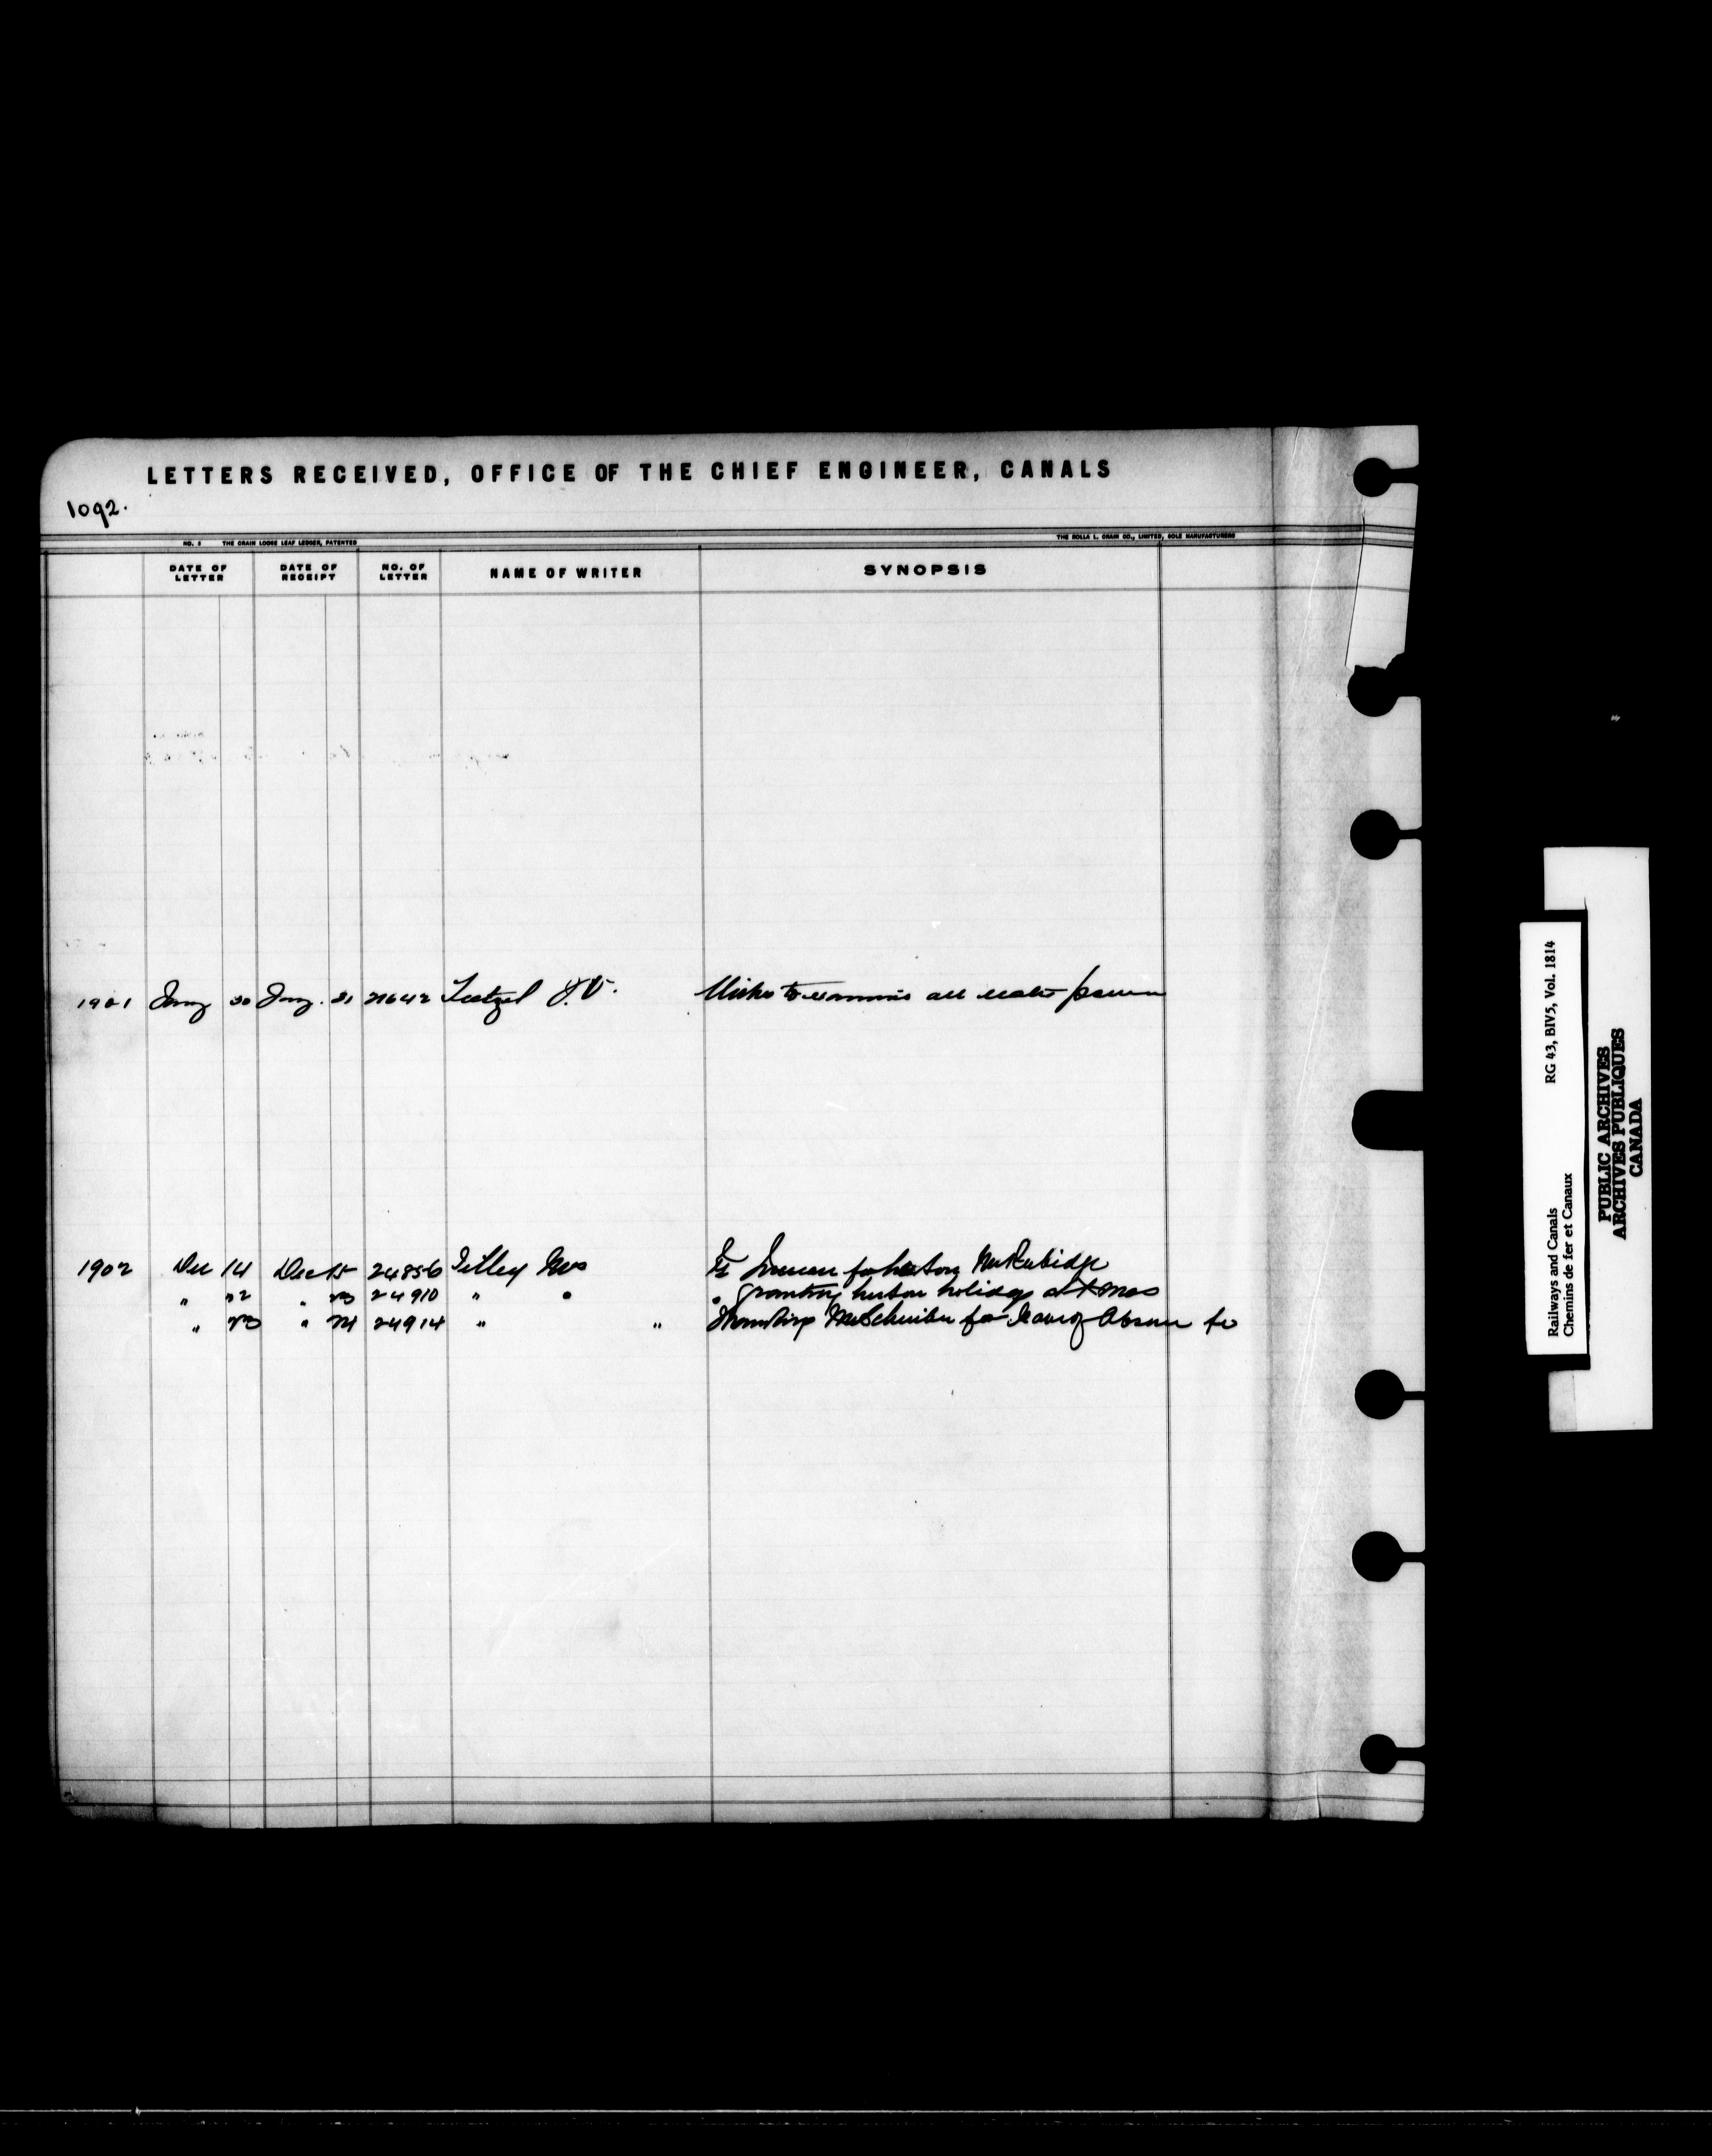 LETTERS RECEIVED, OFFICE OF THE CHIEF ENGINEER, CANALS
1092.
NO. 5 THE CRAIN LOOSE LEAF LEDGER, PATENTED THE ROLLA L. CRAIN CO., LIMITED, SOLE MANUFACTURERS
DATE OF LETTER DATE OF RECEIPT NO. OF LETTER NAME OF WRITER SYNOPSIS
1901 Jany 30 Jany. 31 21642 Teetzel J. V. Wishes to examine all
1902 Dec 14 Dec 15 24856 Tilley Mrs for her son Mr Rubidge
" 22 " 23 24910 " " " granting her son holidays at Xmas
" 23 " 24 24914 " " Thanking Mr Schreiber for leave of Absence to
Railways and Canals RG 43, BIV5, Vol. 1814
Chemins de fer et Canaux
PUBLIC ARCHIVES
ARCHIVES PUBLIQUES
CANADA